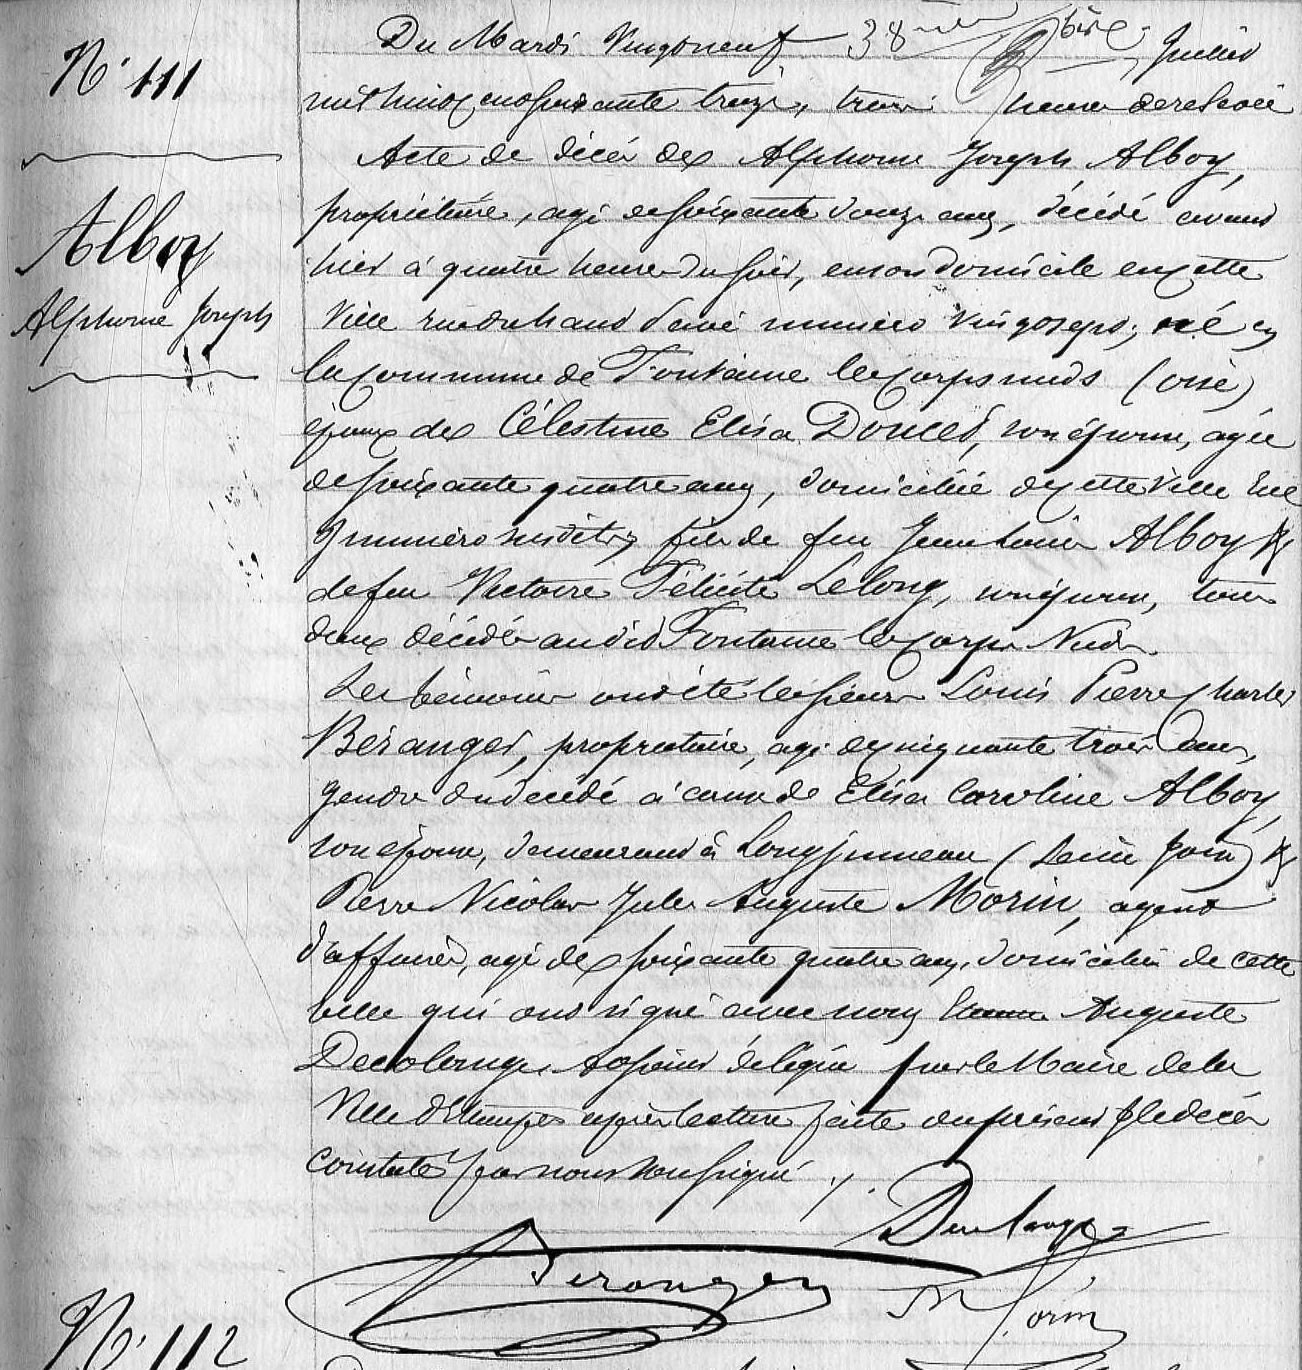 N° 111
Alboy
Alphonse Joseph
Du Mardi Vingtneuf Juillet
mil huit cent soixante treize, trois heures de relevée
Acte de décès de Alphonse Joseph Alboy,
propriétaire, agé de soixante douze ans, décédé avant
hier à quatre heures du soir, en son domicile en cette
Ville rue du haut Pavé numéro Vingtsept, né en
la commune de Fontaine les Corps nuds (oise)
époux de Célestine Elisa Doucet, son épouse, agée
de soixante quatre ans, domiciliée de cette Ville rue
& numéro susdits, fils de feu Jean Louis Alboy &
de feu Victoire Félicité Lelong, son épouse, tous
deux décédés audit Fontaine les Corps Nuds.
Les témoins ont été les sieurs Louis Pierre Charles
Béranger, propriétaire, agé de cinquante trois ans,
gendre du décédé à cause de Elisa Caroline Alboy,
son épouse, demeurant à Longjumeau (Seine & oise) &
Pierre Nicolas Jules Auguste Morin, agent
d'affaires, agé de soixante quatre ans, domicilié de cette
ville qui ont signé avec nous Auguste
Decolange, adjoint délégué par le Maire de la
Ville d'Etampes après lecture faite du présent & le décès
constaté par nous soussigné ./.
Decolange
Beranger
Morin
N° 112